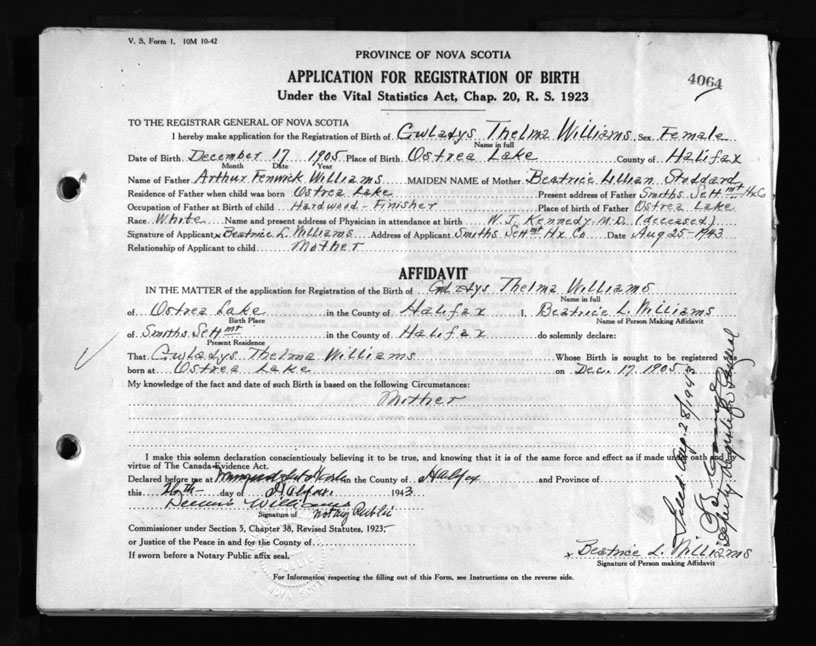 V. S. Form 1. 10M 10-42
PROVINCE OF NOVA SCOTIA
4064
APPLICATION FOR REGISTRATION OF BIRTH
Under the Vital Statistics Act, Chap. 20, R. S. 1923
TO THE REGISTRAR GENERAL OF NOVA SCOTIA
I hereby make application for the Registration of Birth of Gwladys Thelma Williams Sex Female
Name in full
Date of Birth December 17 1905 Place of Birth Ostrea Lake County of Halifax
Month Date Year
Name of Father Arthur Fenwick Williams MAIDEN NAME of Mother Beatrice Lillian Stoddard
Residence of Father when child was born Ostrea Lake Present address of Father Smiths Settmt Hx Co
Occupation of Father at Birth of child Hardwood-Finisher Place of birth of Father Ostrea Lake
Race White Name and present address of Physician in attendance at birth W. J. Kennedy, M.D. (deceased)
Signature of Applicant x Beatrice L. Williams Address of Applicant Smiths Settmt Hx Co Date Aug 25-1943
Relationship of Applicant to child Mother
AFFIDAVIT
IN THE MATTER of the application for Registration of the Birth of Gwladys Thelma Williams
Name in full
of Ostrea Lake in the County of Halifax I, Beatrice L. Williams
Birth Place Name of Person Making Affidavit
of Smiths Settmt in the County of Halifax do solemnly declare:
Present Residence
That Gwladys Thelma Williams Whose Birth is sought to be registered
born at Ostrea Lake on Dec. 17 1905
My knowledge of the fact and date of such Birth is based on the following Circumstances:
Mother
I make this solemn declaration conscientiously believing it to be true, and knowing that it is of the same force and effect as if made under oath and by
virtue of The Canada Evidence Act.
Declared before me at in the County of Halifax and Province of
this 26th day of 1943
Dennis Williams
Signature of Notary Public
Commissioner under Section 5, Chapter 38, Revised Statutes, 1923,
or Justice of the Peace in and for the County of
If sworn before a Notary Public affix seal.
x Beatrice L. Williams
Signature of Person making Affidavit
For Information respecting the filling out of this Form, see Instructions on the reverse side.
Filed Aug. 28/1943
Deputy Registrar General